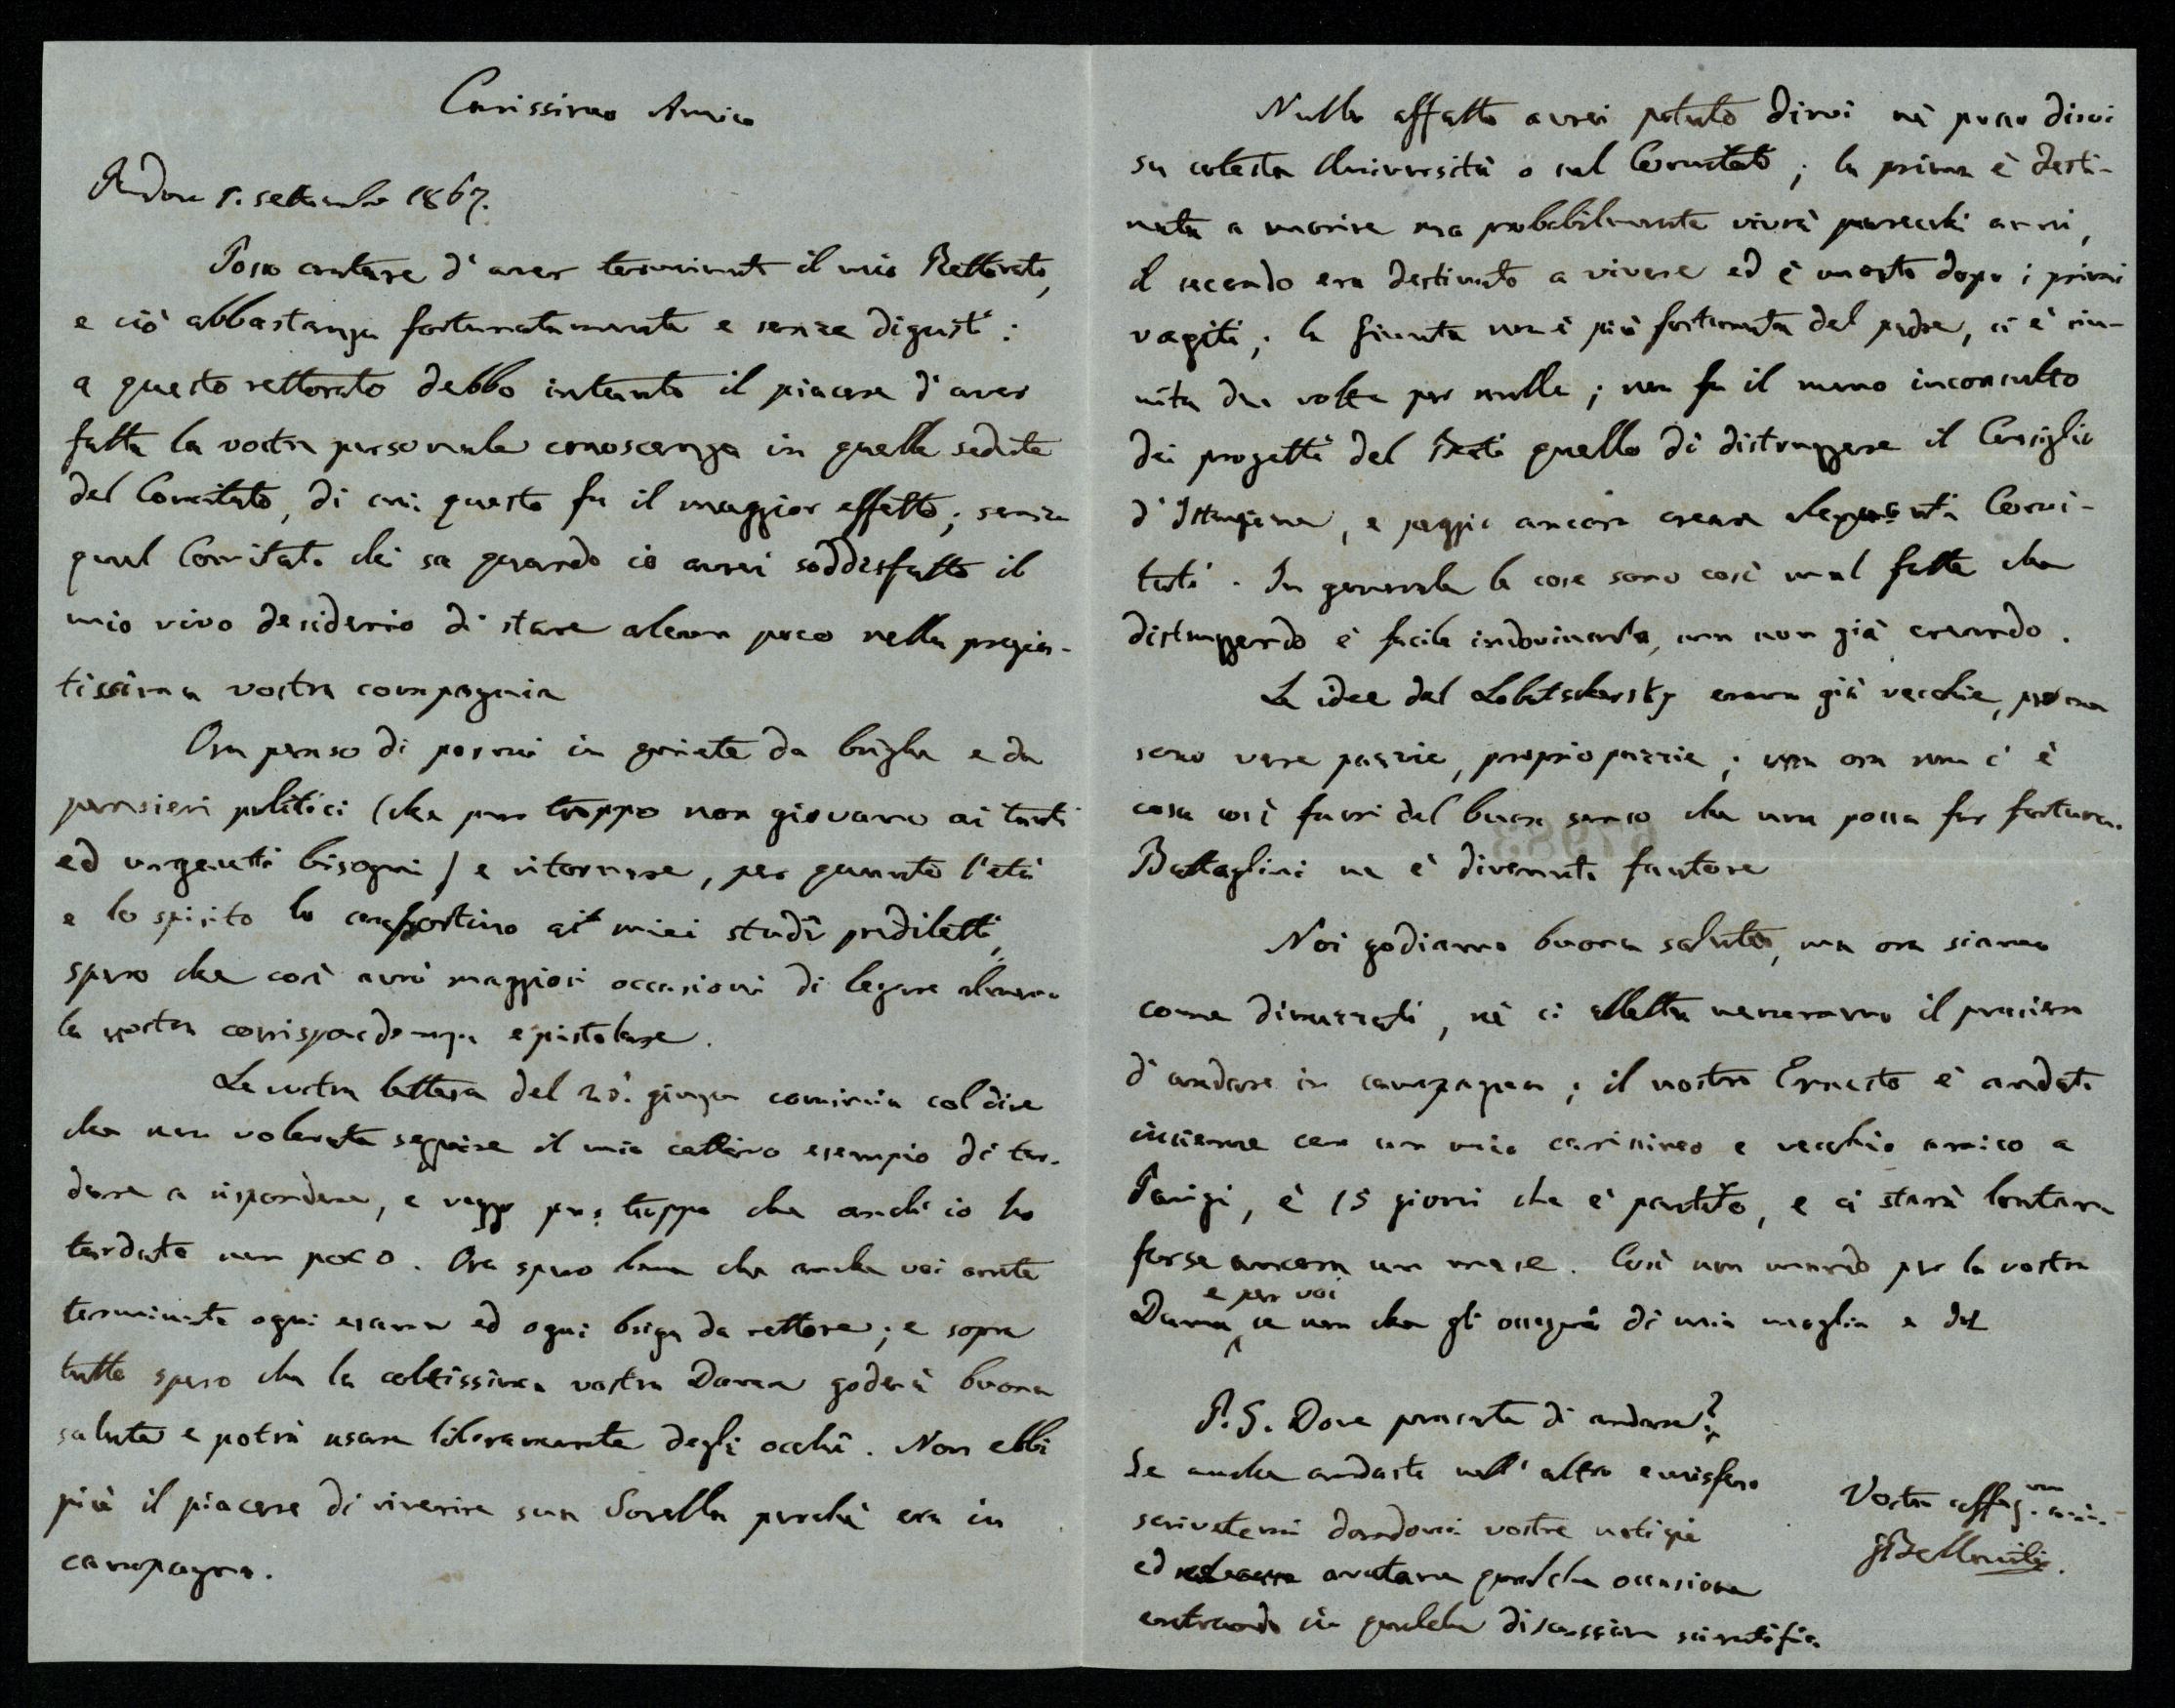 Carissimo Amico
Padova 5. settembre 1867.
Posso contare d'aver terminato il mio Rettorato,
e ciò abbastanza fortunatamente e senza digusti:
a questo rettorato debbo intanto il piacere d'aver
fatta la vostra personale conoscenza in quella seduta
del Comitato, di cui questo fu il maggior effetto; senza
quel Comitato chi sa quando io avrei soddisfatto il
mio vivo desiderio di stare alcun poco nella pregia-
tissima vostra compagnia
Ora penso di pormi in quiete da brighe e da
pensieri politici (che pur troppo non giovano ai tanti
ed urgenti bisogni) e ritornare, per quanto l'età
e lo spirito lo comportino ai miei studî prediletti,
spero che così avrò maggiori occasioni di legare almeno
la vostra corrispondenza epistolare.
La vostra lettera del 28. giugno comincia col dire
che non volevate seguire il mio cattivo esempio di tar-
dare a rispondere, e veggo pur troppo che anch'io ho
tardato non poco. Ora spero bene che anche voi avrete
terminato ogni esame ed ogni briga da rettore; e sopra
tutto spero che la coltissima vostra Dama goderà buona
salute e potrà usare liberamente degli occhi. Non ebbi
più il piacere di riverire sua Sorella perchè era in
campagna.
Nulla affatto avrei potuto dirvi nè posso dirvi
su cotesta Università o sul Comitato; la prima è desti-
nata a morire ma probabilmente vivrà parecchi anni,
il secondo era destinato a vivere ed è morto dopo i primi
vagiti; la Giunta non è più fortunata del padre, si è riu-
nita due volte per nulla; non fu il meno inconsulto
dei progetti del Berti quello di distruggere il Consiglio
d'Istruzione, e peggio ancora creare Comi-
tati. In generale le cose sono così mal fatte che
distruggendo è facile indovinarla, ma non già creando.
Le idee del Lobatschewsky erano già vecchie,
sono vere pazzie, proprio pazzie; ma ora non c'è
cosa così fuori del buon senso che non possa far fortuna.
Battaglini ne è divenuto fautore
Noi godiamo buona salute, ma ora siamo
come dimezzati, nè ci alletta nemmeno il pensiero
d'andare in campagna; il nostro Ernesto è andato
insieme con un mio carissimo e vecchio amico a
Parigi, è 15 giorni che è partito, e ci starà lontano
forse ancora un mese. Così non mando per la vostra
Dama e per voi se non che gli ossequi di mia moglie e del
Vostro affez.mo amico
GBellavitis.
P.S. Dove pensate di andare?
Se anche andaste nell'altro emisfero
scrivetemi dandomi vostre notizie
ed qualche occasione
entrando in qualche discussione scientifica